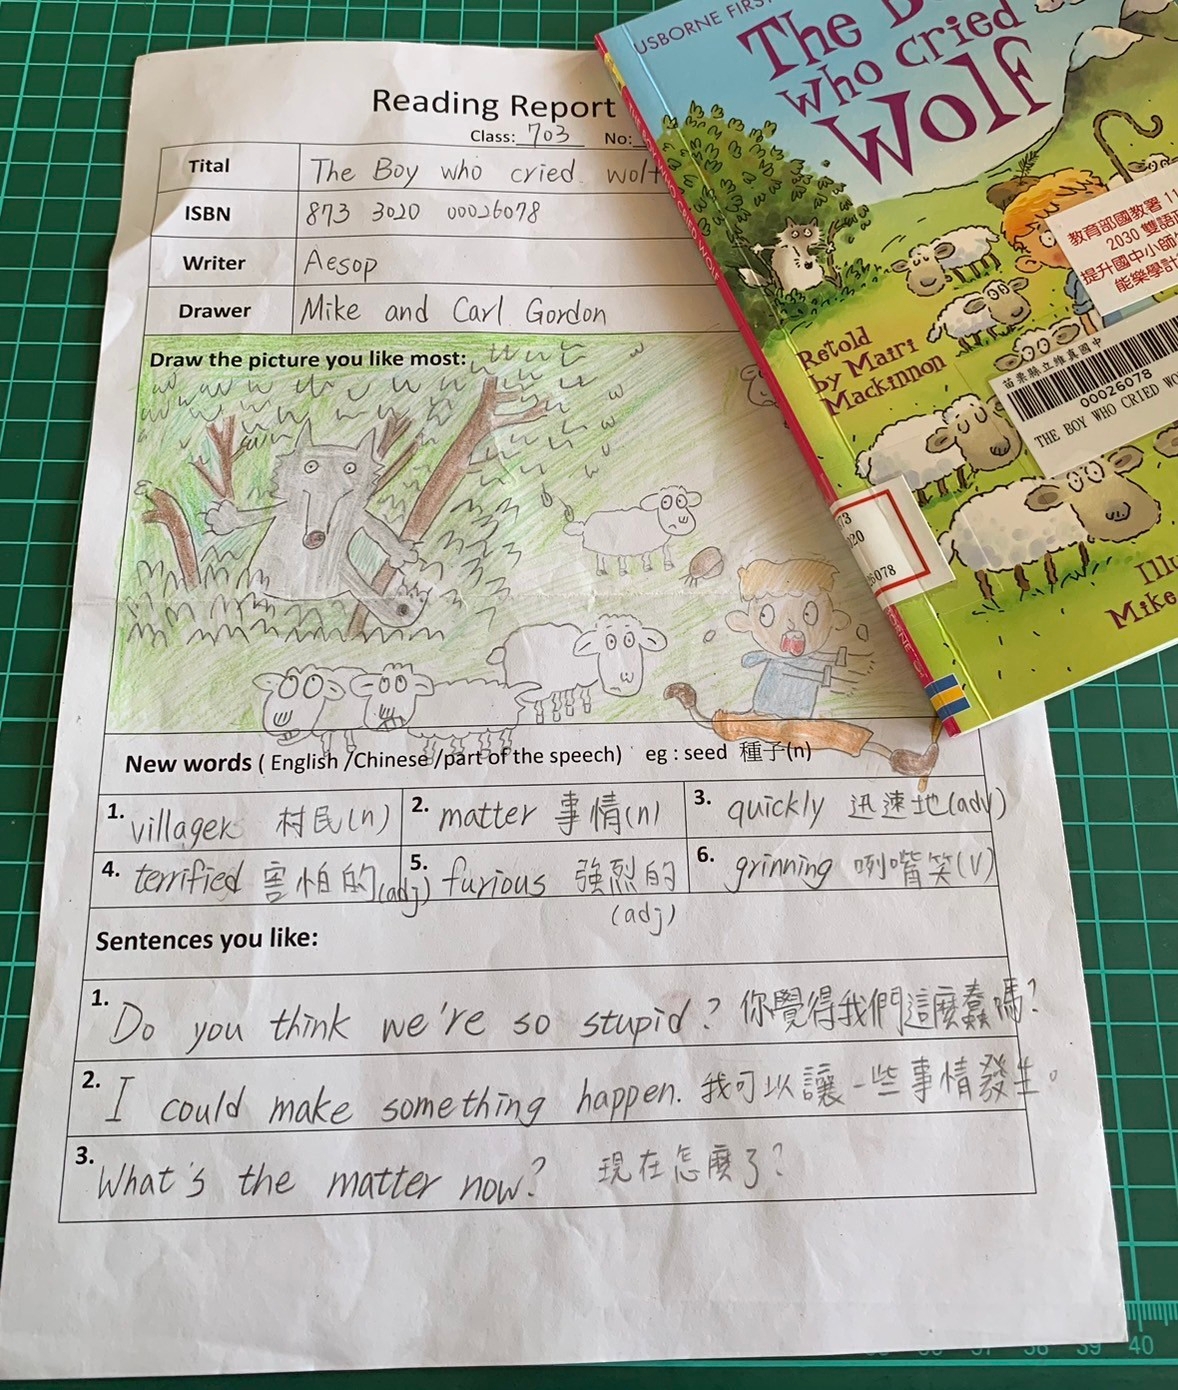 Reading Report
Class: 703 No:
Tital The Boy who cried wolf
ISBN 873 3020 00026078
Writer Aesop
Drawer Mike and Carl Gordon
Draw the picture you like most:
New words ( English /Chinese /part of the speech) eg : seed 種子(n)
1. villagers 村民(n) 2. matter 事情(n) 3. quickly 迅速地(adv)
4. terrified 害怕的(adj) 5. furious 強烈的(adj) 6. grinning 咧嘴笑(v)
Sentences you like:
1. Do you think we're so stupid? 你覺得我們這麼蠢嗎?
2. I could make something happen. 我可以讓一些事情發生。
3. What's the matter now? 現在怎麼了?
USBORNE
The
Who Cried
Wolf
THE BOY WHO CRIED WOLF
教育部國教署
2030
提升國中小師
能樂學計
Retold
by Mairi
Mackinnon
苗栗縣立維真國中
00026078
THE BOY WHO CRIED
20
6078
Mike
38 39 40